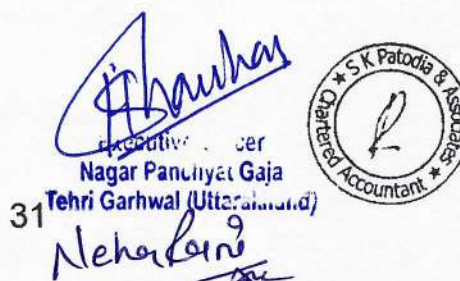 Chauhan
Executive Officer
Nagar Panchyat Gaja
Tehri Garhwal (Uttarakhand)
31
Neha
S K Patodia & Associates
Chartered Accountant